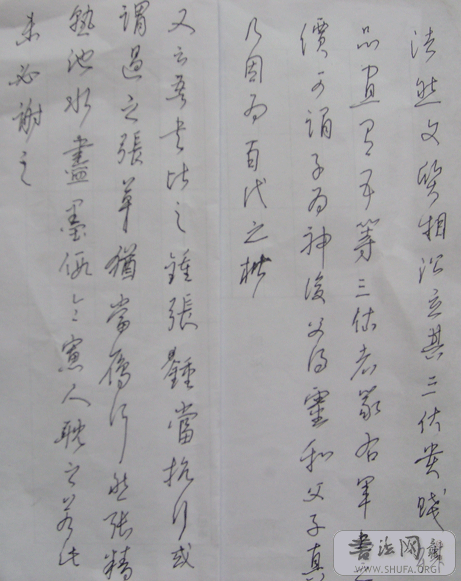 法然文質相沿立其三估貴賤
品置有五等三估者篆右軍
價可謂子為神後父為靈和父子真
乃因為百代之楷
又云吾書比之鍾張鍾當抗行或
謂過之張草猶當雁行然張精
熟池水盡墨假令寡人耽之若此
未必謝之
書法网
WWW.SHUFA.ORG